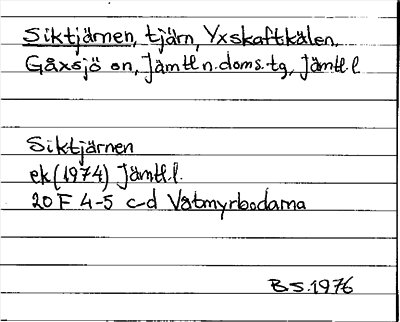 Siktjärnen, tjärn, Yxskaftkälen,
Gåxsjö sn, Jämtl n. doms. tg, Jämtl. l.
Siktjärnen
ek (1974) Jämtl. l.
20 F 4-5 c-d Våtmyrbodarna
B S. 1976